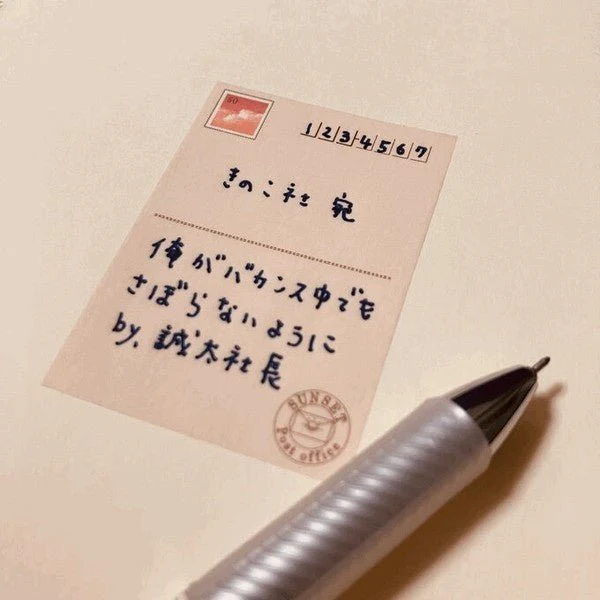 50
1234567
きのこ社 宛
俺がバカンス中でも
さぼらないように
by. 誠太社長
SUNSET
Post office